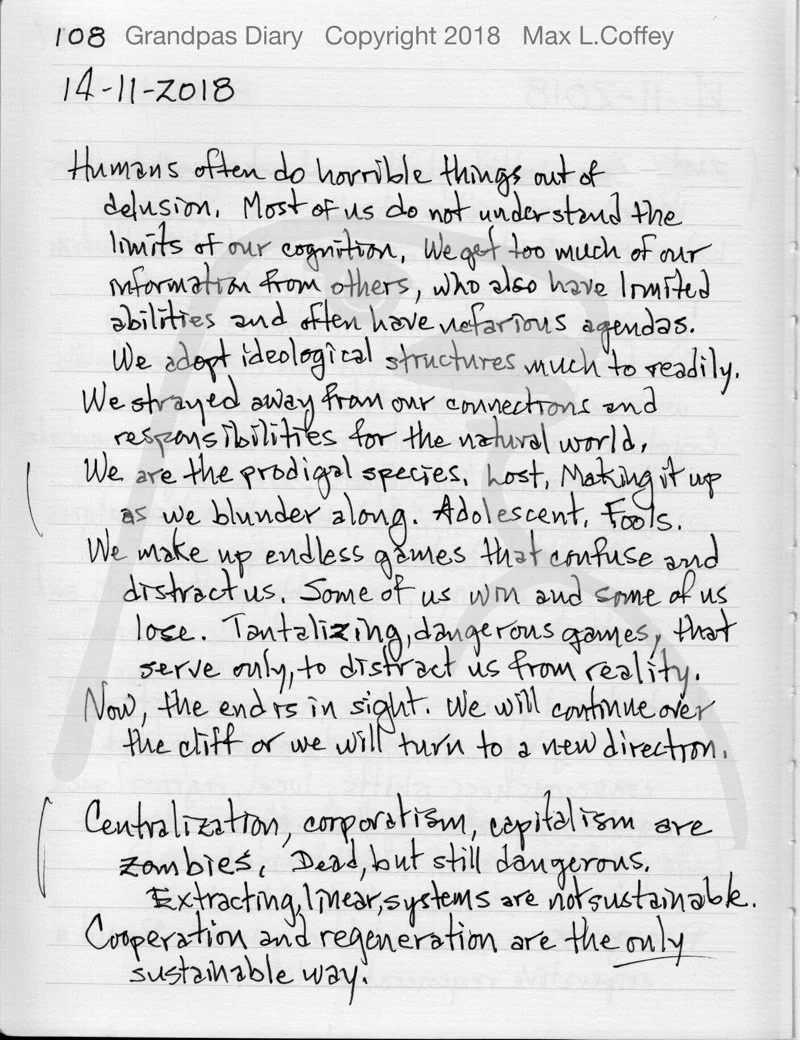 108 Grandpas Diary Copyright 2018 Max L.Coffey
14-11-2018
Humans often do horrible things out of
delusion. Most of us do not understand the
limits of our cognition. We get too much of our
information from others, who also have limited
abilities and often have nefarious agendas.
We adopt ideological structures much to readily.
We strayed away from our connections and
responsibilities for the natural world.
We are the prodigal species. Lost. Making it up
as we blunder along. Adolescent. Fools.
We make up endless games that confuse and
distract us. Some of us win and some of us
lose. Tantalizing, dangerous games, that
serve only, to distract us from reality.
Now, the end is in sight. We will continue over
the cliff or we will turn to a new direction.
Centralization, corporatism, capitalism are
zombies. Dead, but still dangerous.
Extracting, linear, systems are not sustainable.
Cooperation and regeneration are the only
sustainable way.